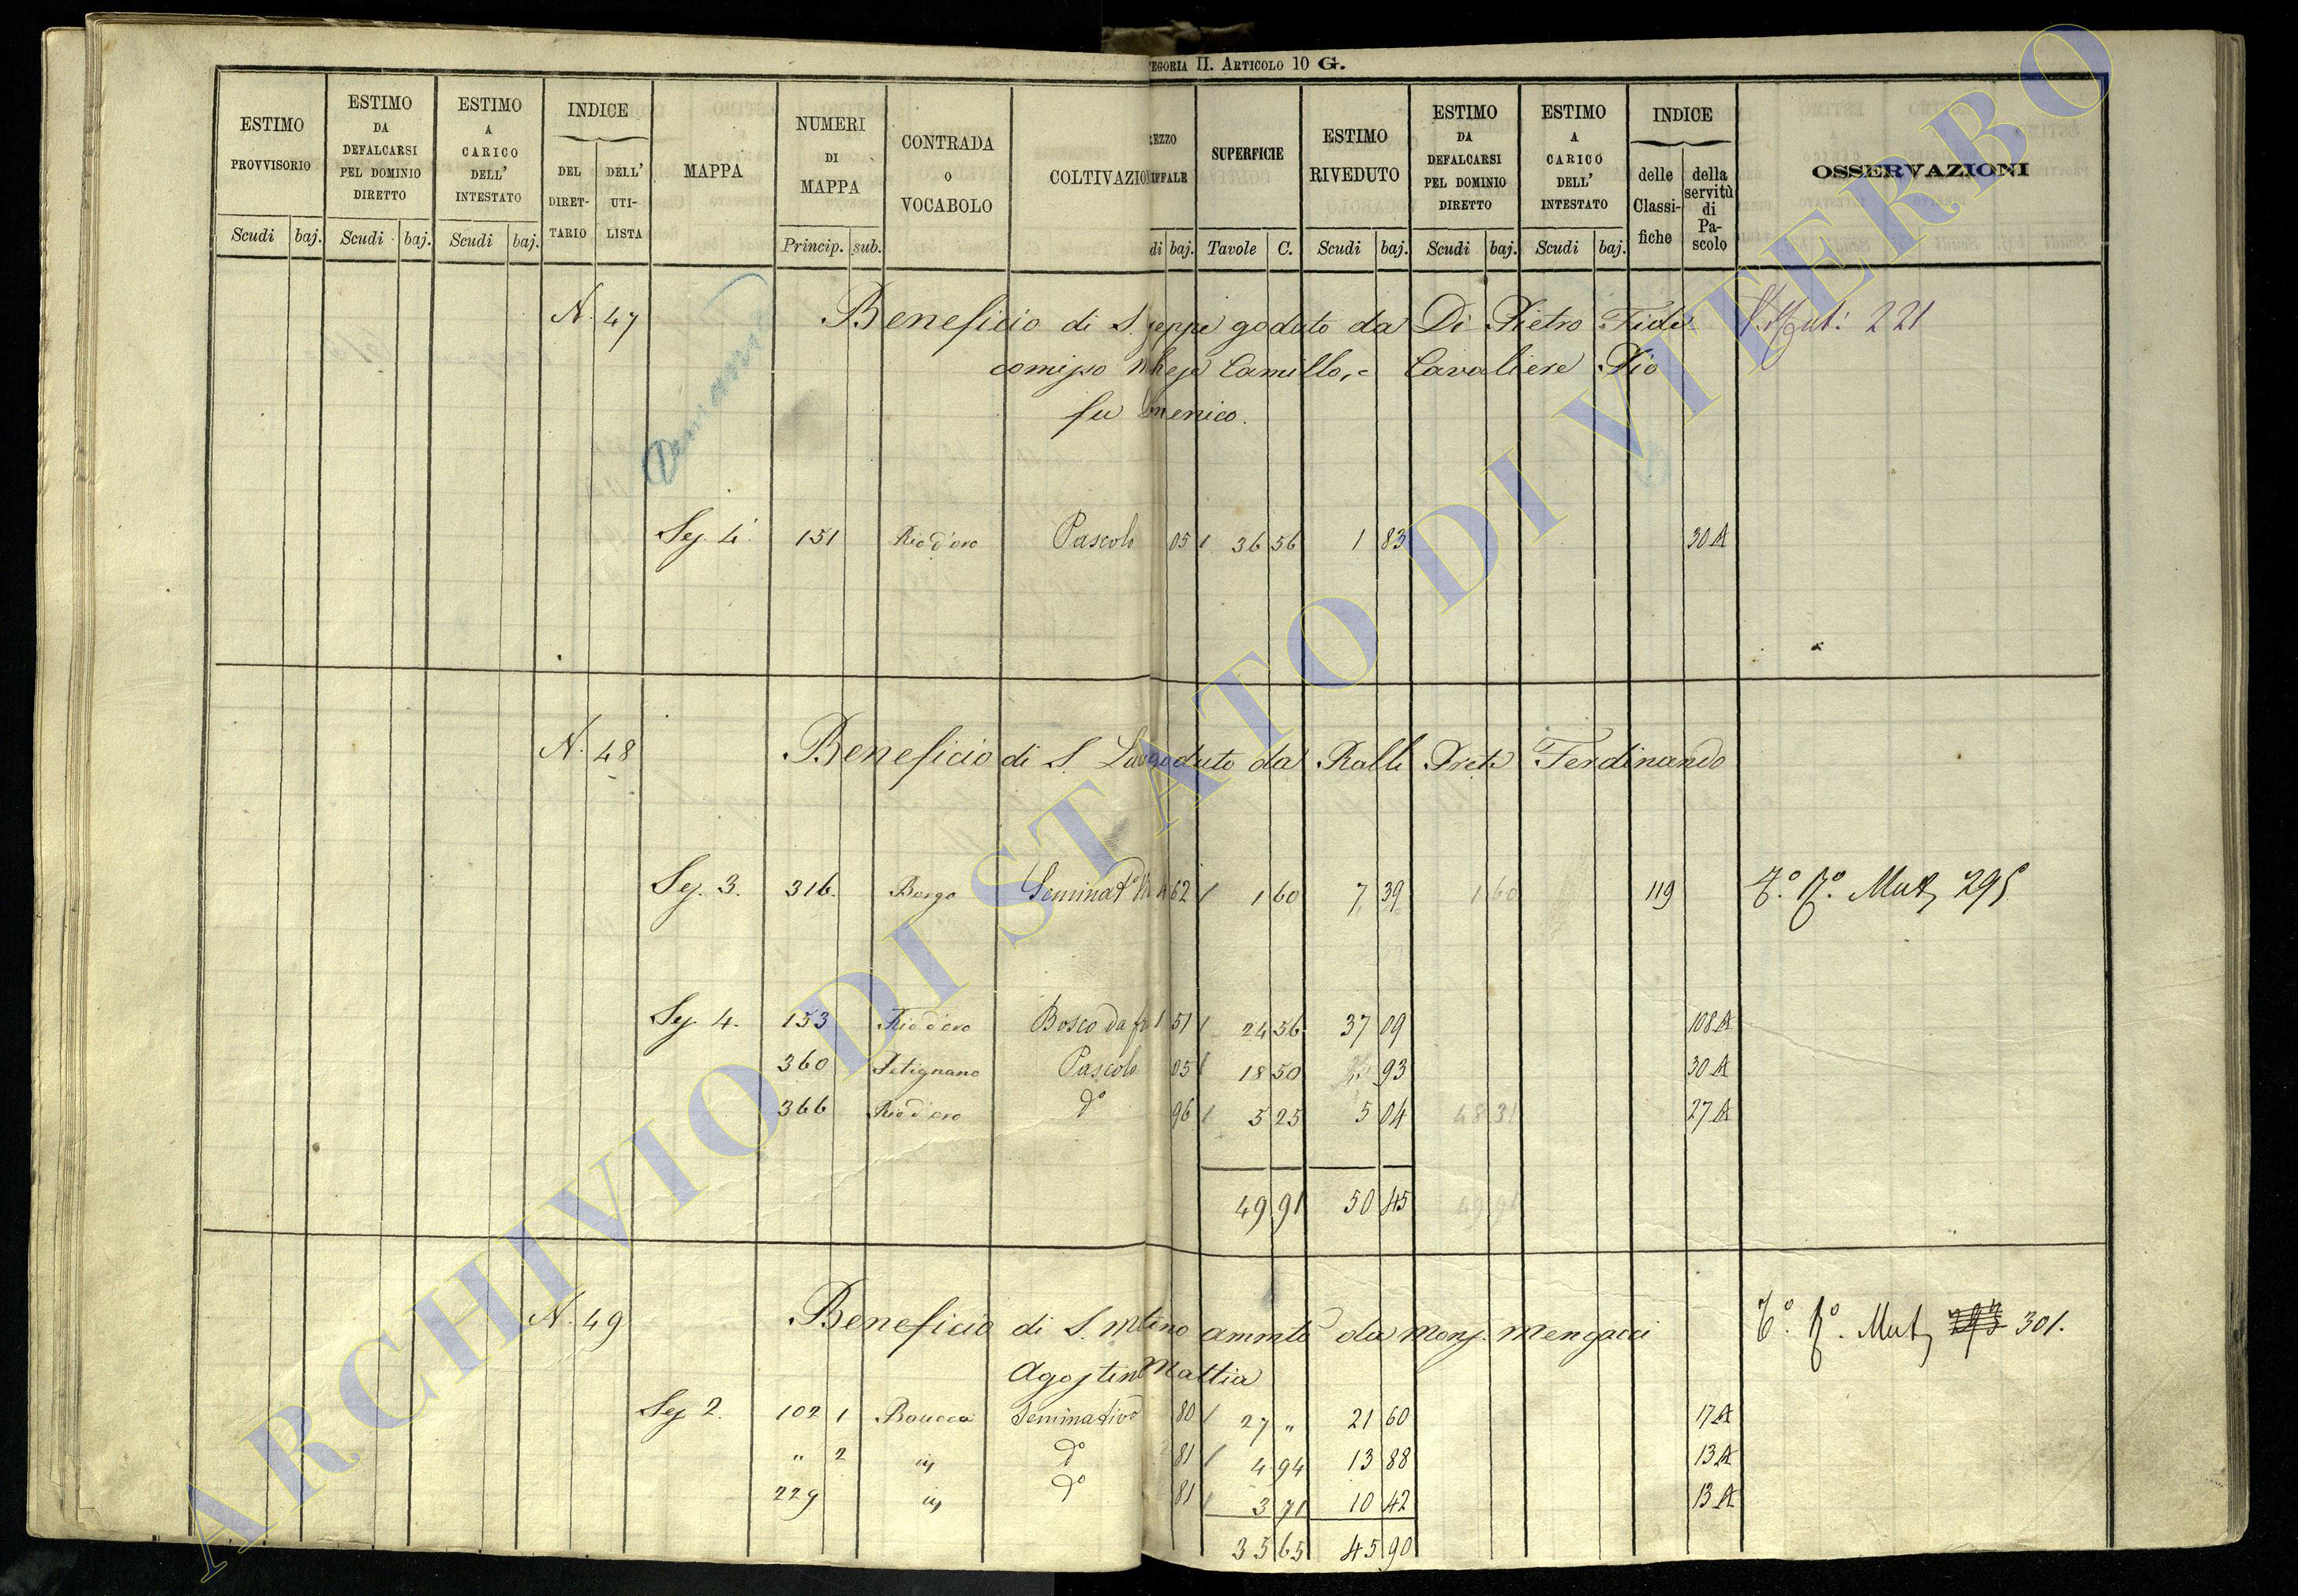 EGORIA II. ARTICOLO 10 G.
ESTIMO PROVVISORIO
Scudi baj.
ESTIMO DA DEFALCARSI PEL DOMINIO DIRETTO
Scudi baj.
ESTIMO A CARICO DELL' INTESTATO
Scudi baj.
INDICE
DEL DIRET-TARIO
DELL' UTI-LISTA
MAPPA
NUMERI DI MAPPA
Princip. sub.
CONTRADA O VOCABOLO
COLTIVAZIO
REZZO IFFALE
di baj.
SUPERFICIE
Tavole C.
ESTIMO RIVEDUTO
Scudi baj.
ESTIMO DA DEFALCARSI PEL DOMINIO DIRETTO
Scudi baj.
ESTIMO A CARICO DELL' INTESTATO
Scudi baj.
INDICE
delle Classi-fiche
della servitù di Pa-scolo
OSSERVAZIONI
N. 47 Beneficio di S. seppe goduto da Di Pietro Fide 221
Camillo, e Cavaliere Pio
fu menico.
Sez. 4. 151 Rio d'oro Pascolo 05 36 56 1 83 30 A
N. 48 Beneficio di S. goduto da Ralli Prete Ferdinando
Sez. 3. 316. Borgo Seminat° 4 62 1 60 7 39 1 60 119 T.° R.° Mut. 295
Sez. 4. 153 Rio d'oro Bosco da 1 51 24 56 37 09 108 A
360 Petignano Pascolo 05 18 50 93 30 A
366 Rio d'oro d° 96 5 25 5 04 48 31 27 A
49 91 50 45 49 91
N. 49 Beneficio di S. ammto da Mons. Mengacci T.° R.° Mut. 301.
Agostin Mattia
Sez. 2. 102 1 Boucca Seminativo 80 27 " 21 60 17 A
" 2 " d° 81 4 94 13 88 13 A
229 " d° 81 3 71 10 42 13 A
35 65 45 90
ARCHIVIO DI STATO DI VITERBO